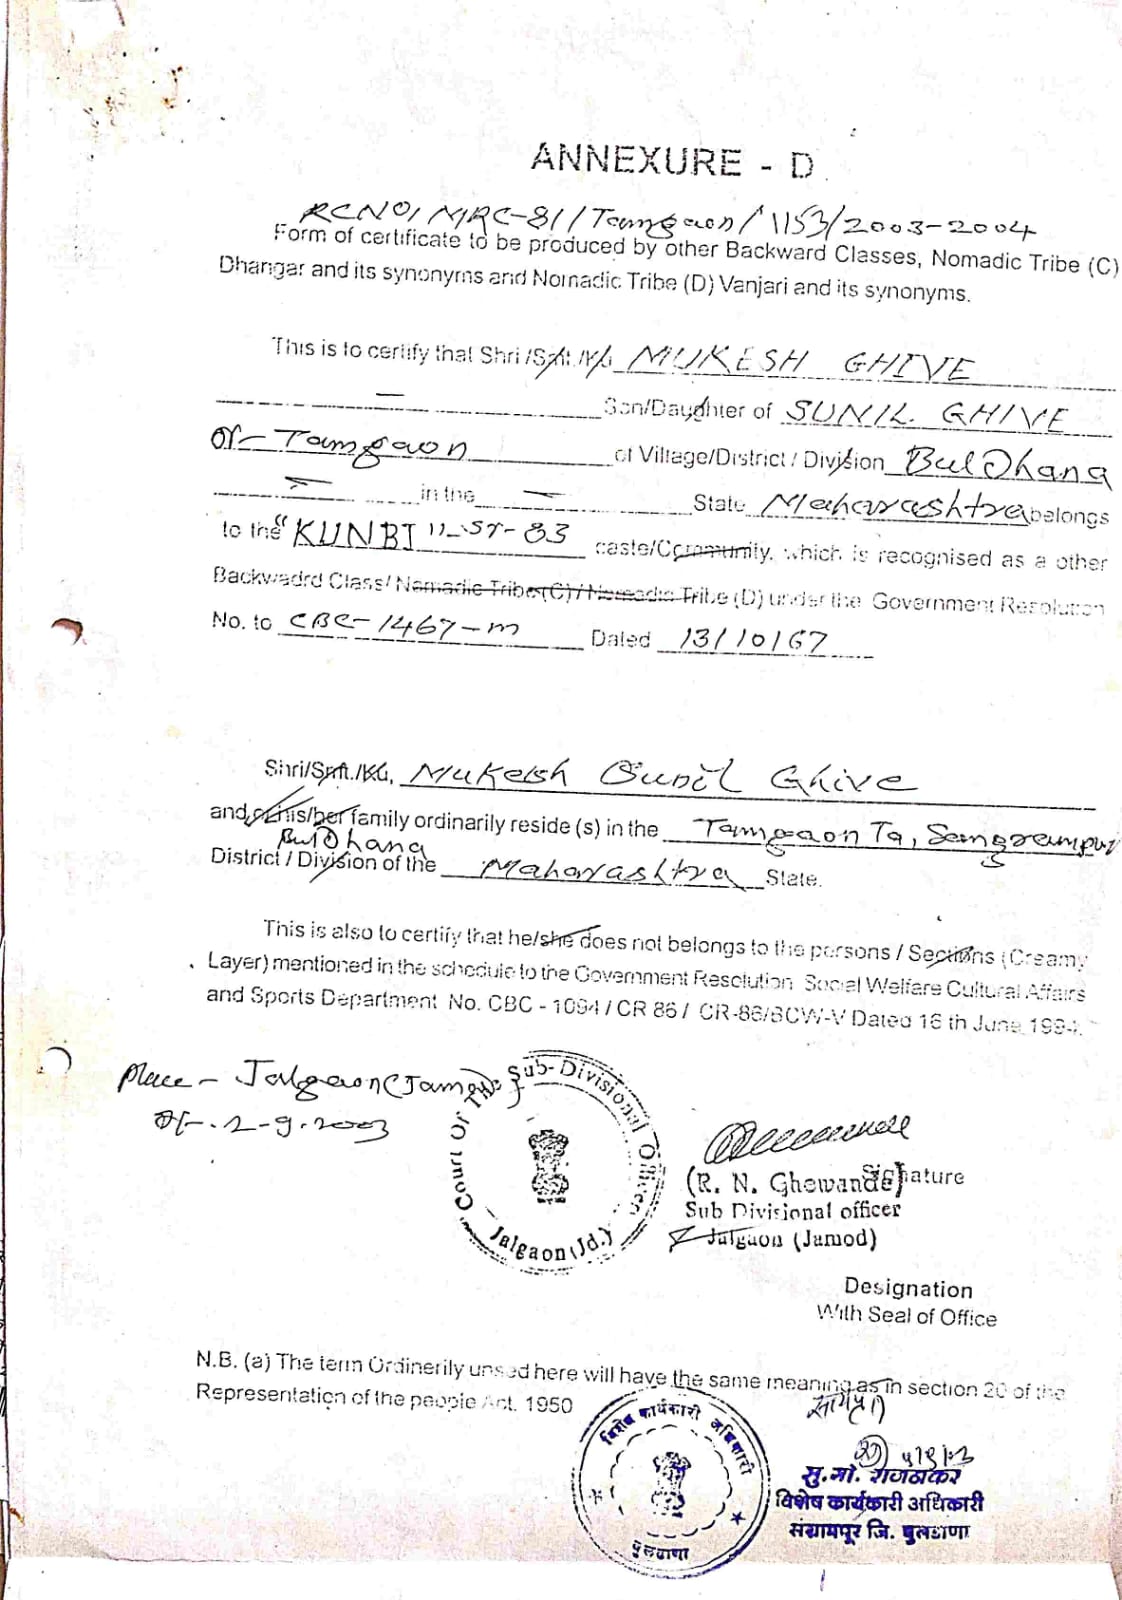 ANNEXURE - D
RCNO/MRC-81/Tamgaon/1153/2003-2004
Form of certificate to be produced by other Backward Classes, Nomadic Tribe (C)
Dhangar and its synonyms and Nomadic Tribe (D) Vanjari and its synonyms.
This is to certify that Shri /Smt. /Ku MUKESH GHIVE
Son/Daughter of SUNIL GHIVE
Tamgaon of Village/District / Division Buldhana
in the State Maharashtra belongs
to the "KUNBI" 83 caste/Community, which is recognised as a other
Backwadrd Class/ Nomadic Tribe (C) / Nomadic Tribe (D) under the Government Resolution
No. to CBC-1467-M Dated 13/10/67
Shri/Smt./Ku. Mukesh Sunil Ghive
and or his/her family ordinarily reside (s) in the Tamgaon Ta, Sangrampur
Buldhana
District / Division of the Maharashtra State.
This is also to certify that he/she does not belongs to the persons / Sections (Creamy
Layer) mentioned in the schedule to the Government Resolution Social Welfare Cultural Affairs
and Sports Department No. CBC - 1094 / CR 86 / CR-86/BCW-V Dated 16 th June, 1994.
Place - Jalgaon (Jamod)
2-9-2003
Court Of The Sub-Divisional Officer
Jalgaon (Jd.)
Signature
(R. N. Ghewande)
Sub Divisional officer
Jalgaon (Jamod)
Designation
With Seal of Office
N.B. (a) The term Ordinerily unsed here will have the same meaning as in section 20 of the
Representation of the people Act. 1950
विशेष कार्यकारी अधिकारी
बुलडाणा
विशेष कार्यकारी अधिकारी
संग्रामपूर जि. बुलडाणा